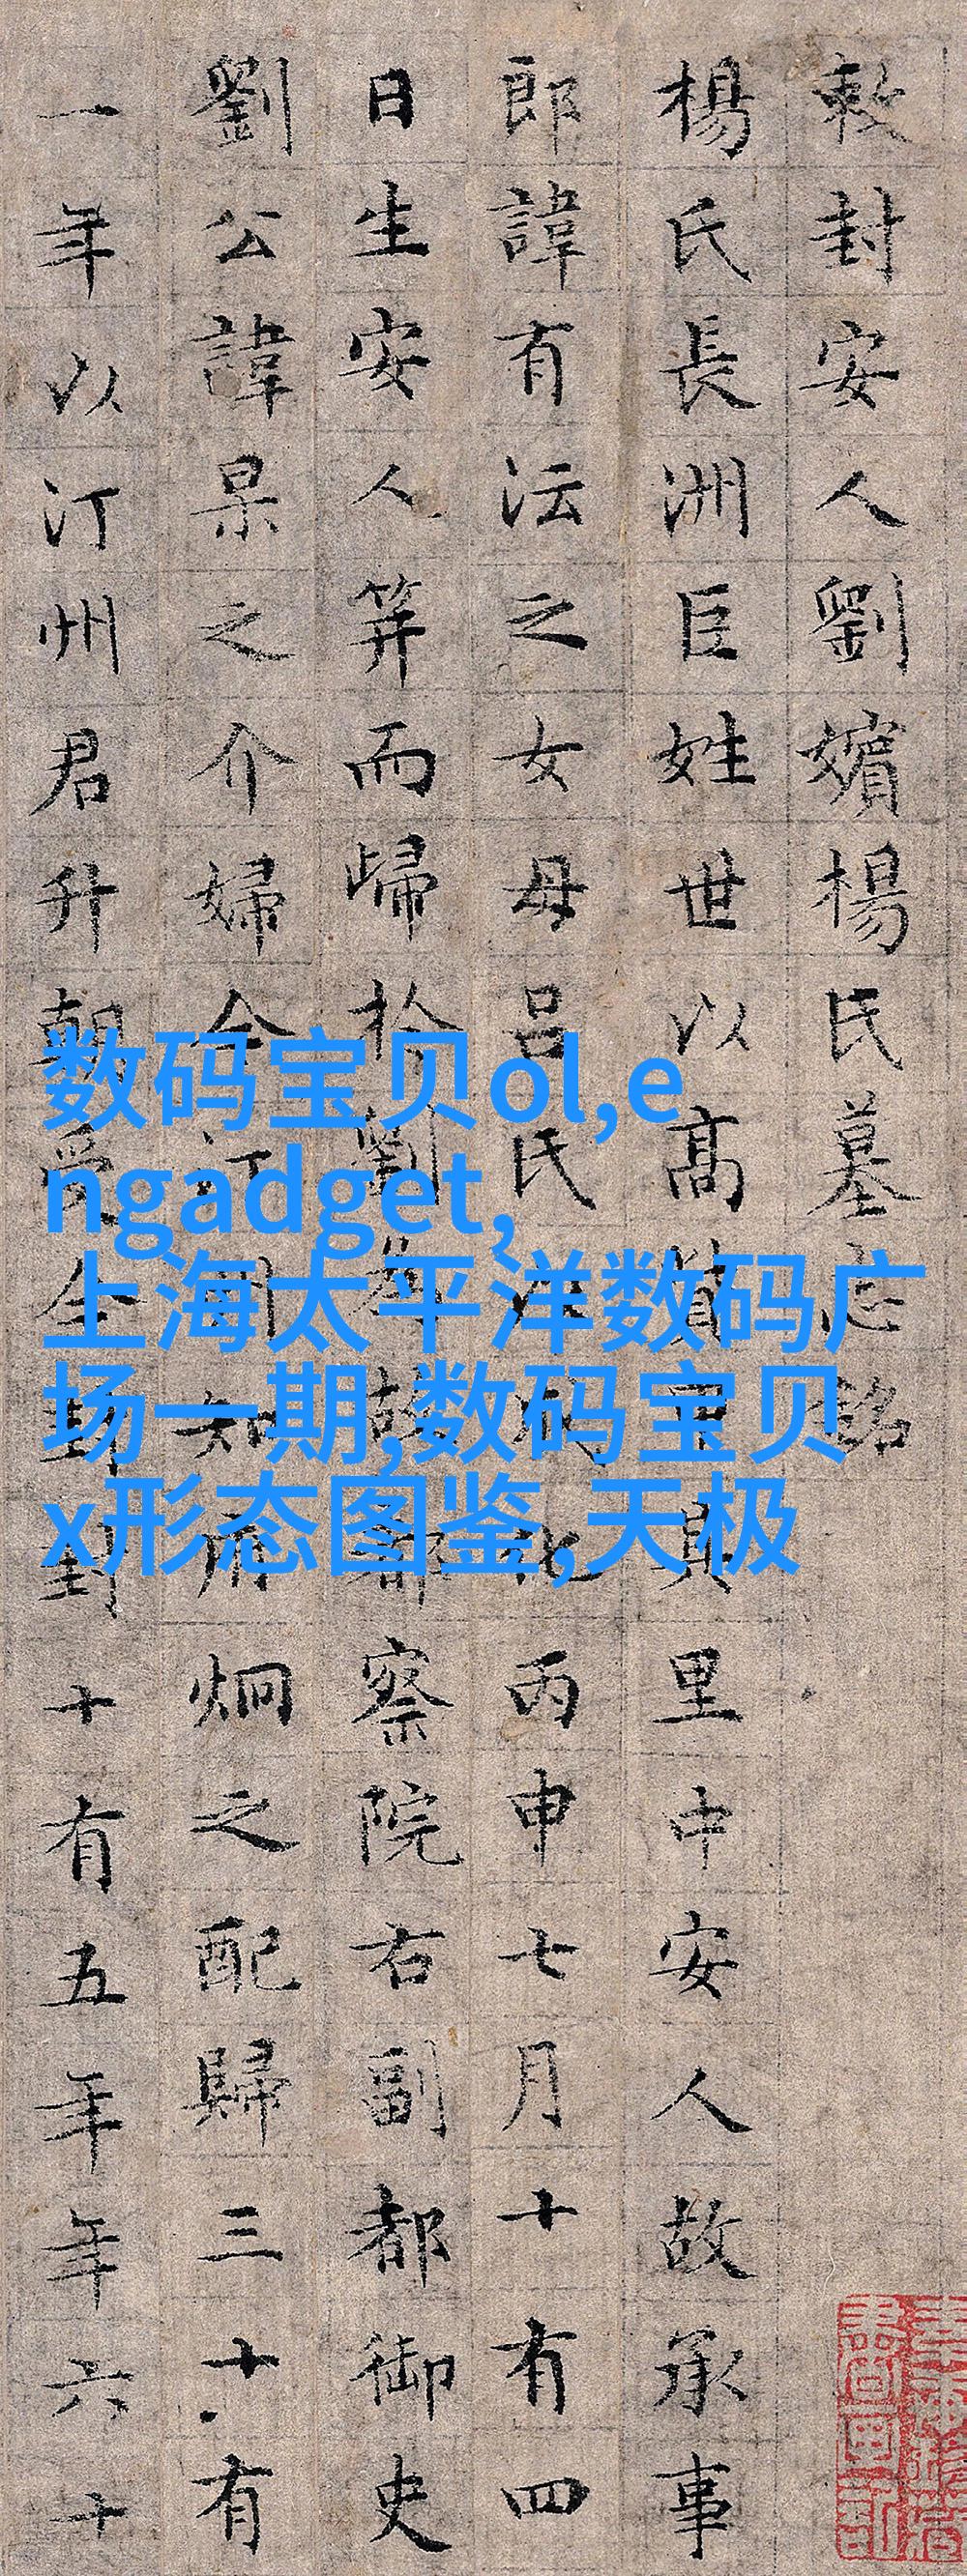 敕封安人劉嬪楊氏墓志銘
楊氏長洲巨姓世以高貲里中安人故承事
郎諱有沄之女母呂氏成化丙申七月十有四
日生安人笄而歸於劉為故都察院右副都御史
劉公諱杲之介婦今汀州知府炯之配歸三十有
一年以汀州君升朝受今封封十有五年年六十
数码宝贝ol,e
ngadget,
上海太平洋数码广
场一期,数码宝贝
x形态图鉴,天极